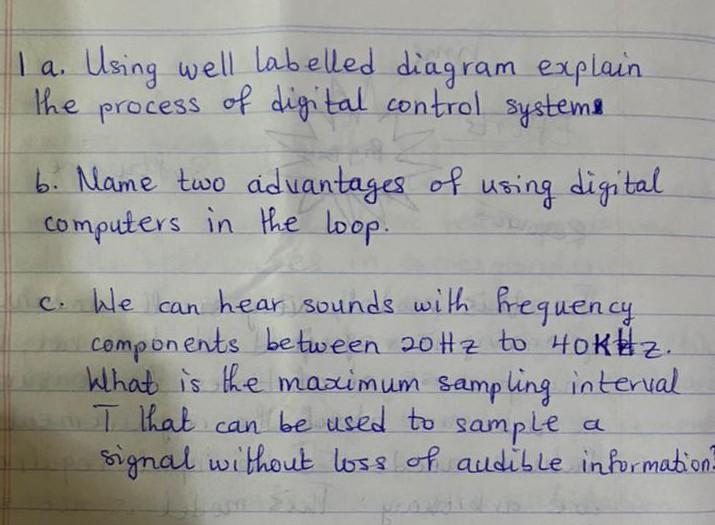 1 a. Using well labelled diagram explain
the process of digital control systems
b. Name two advantages of using digital
computers in the loop.
c. We can hear sounds with frequency
components between 20Hz to 40KHz.
What is the maximum sampling interval
T that can be used to sample a
signal without loss of audible information?